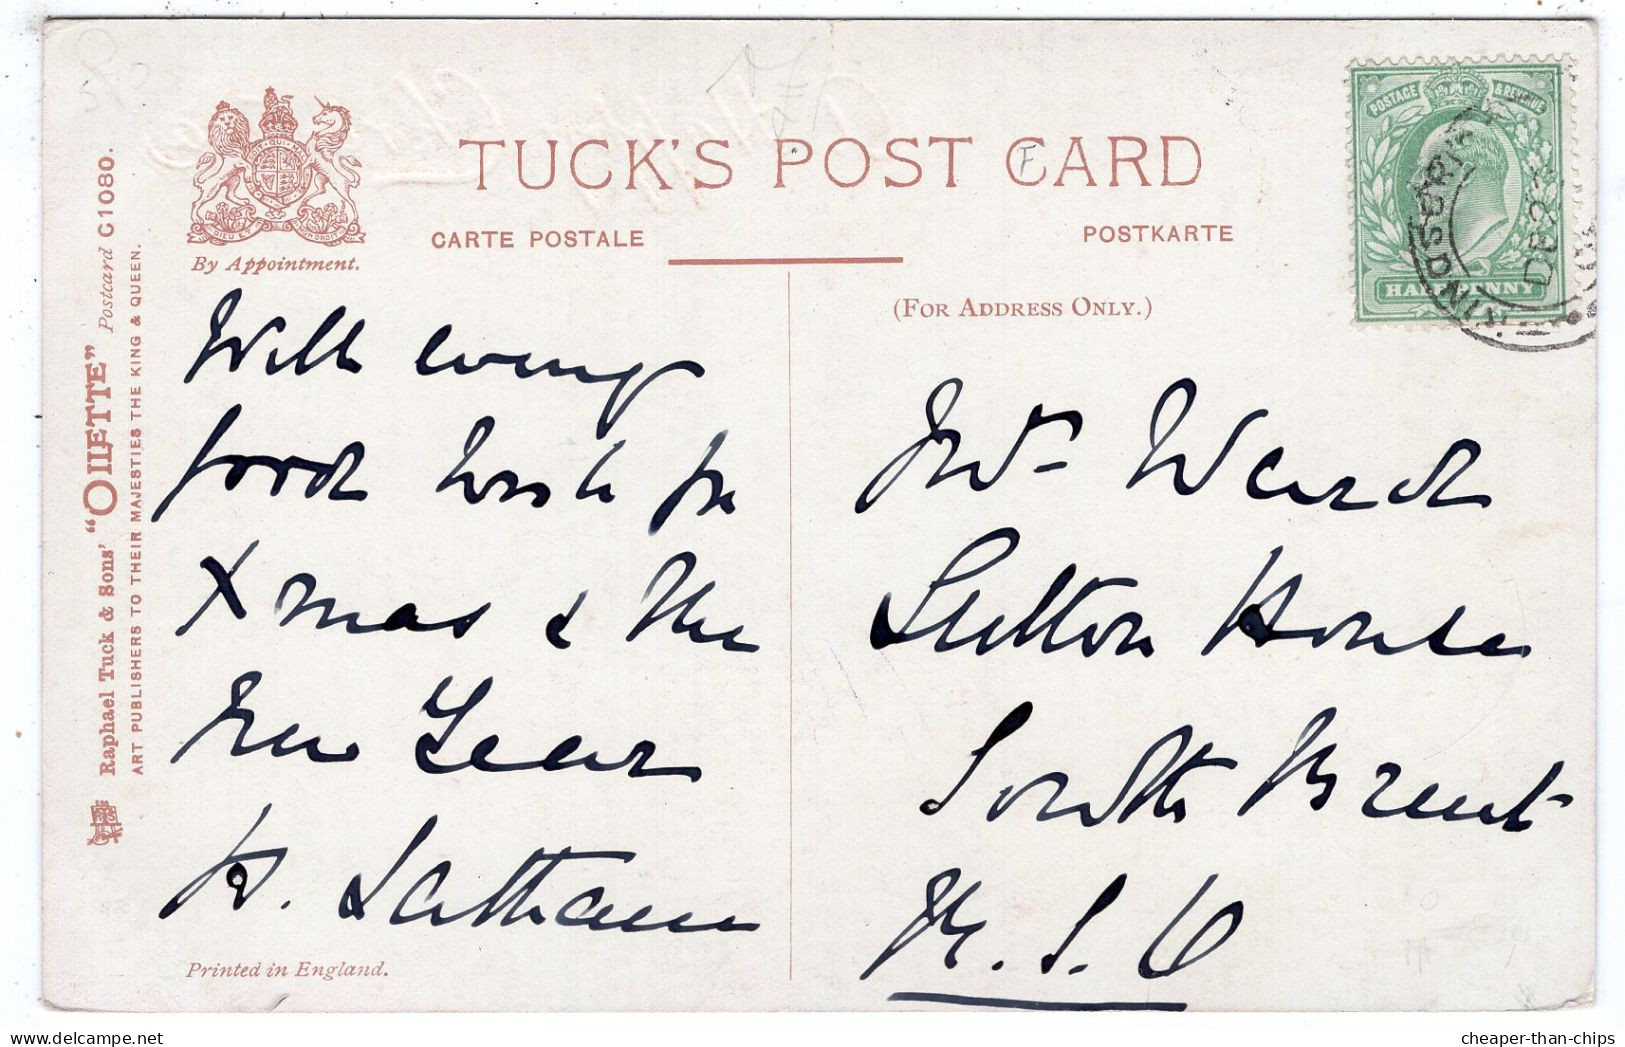 TUCK'S POST CARD
CARTE POSTALE
POSTKARTE
By Appointment.
(FOR ADDRESS ONLY.)
Raphael Tuck & Sons' "OILETTE" Postcard C1080.
ART PUBLISHERS TO THEIR MAJESTIES THE KING & QUEEN.
POSTAGE & REVENUE
HALFPENNY
With every
good wish for
Xmas & the
New Year
Latham
Printed in England.
Mrs Ward
Sutton House
South Brent
R.S.O
cheaper-than-chips